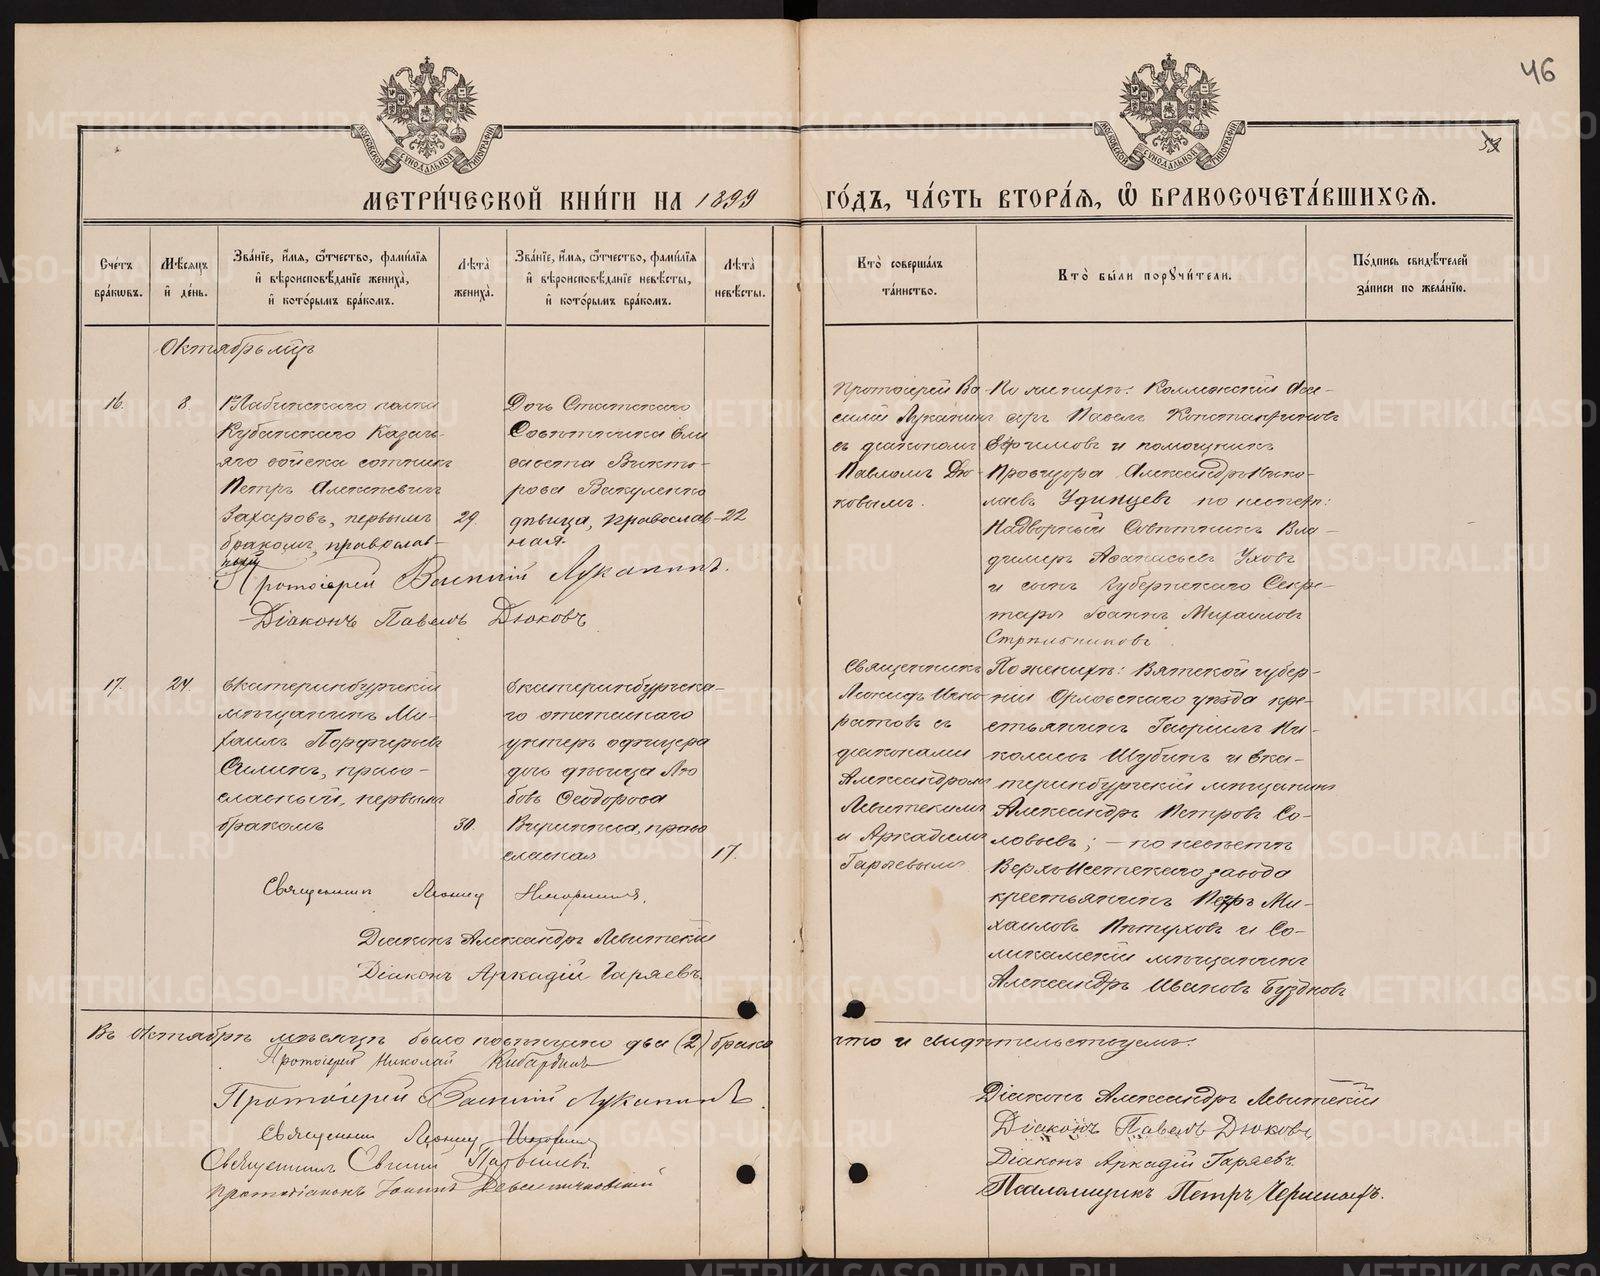 46
МЕТРИ́ЧЕСКОЙ КНИ́ГИ НА 1899
ГО́ДЪ, ЧА́СТЬ ВТОРА́Я, Ѽ БРАКОСОЧЕТА́ВШИХСЯ.
МОСКОВСКОЙ СѴНОДАЛЬНОЙ ТИПОГРАФІИ
МОСКОВСКОЙ СѴНОДАЛЬНОЙ ТИПОГРАФІИ
Сче́тъ бра́кѡвъ.
Мѣ́сяцъ и҆ де́нь.
Зва́ніе, и҆́мя, ѻ҆́тчество, фами́лія и҆ вѣроисповѣ́даніе жениха̀, и҆ кото́рымъ бра́комъ.
Лѣта̀ жениха̀.
Зва́ніе, и҆́мя, ѻ҆́тчество, фами́лія и҆ вѣроисповѣ́даніе невѣ́сты, и҆ кото́рымъ бра́комъ.
Лѣта̀ невѣ́сты.
Кто̀ соверша́лъ та́инство.
Кто̀ бы́ли порꙋчи́тели.
По́дпись свидѣ́телей за́писи по жела́нію.
Октябрь мцъ
16.
8.
Лабинскаго полка
Кубанскаго Казачь-
яго войска сотникъ
Петръ Алексѣевичъ
Захаровъ, первымъ
бракомъ, православ-
ный
29.
Дочь Статскаго
Совѣтника Ели
савета Викто-
рова Вакуленко
дѣвица, православ-
ная.
22
Протоіерей Ва-
силій Луканинъ
съ діакономъ
Павломъ Дю-
ковымъ.
По женихѣ: Коллежскій Ас-
сръ Павелъ Константиновъ
Ефимовъ и помощникъ
Провизора Александръ Нико-
лаевъ Удинцевъ по невѣстѣ:
Надворный Совѣтникъ Вла-
димиръ Аѳанасьевъ Уховъ
и сынъ Губернскаго Секре-
таря Іоаннъ Михаиловъ
Стрѣльниковъ.
Протоіерей Василій Луканинъ.
Діаконъ Павелъ Дюковъ
17.
24.
Екатеринбургскій
мѣщанинъ Ми-
хаилъ Порфирьевъ
Силинъ, право-
славный, первымъ
бракомъ
30.
Екатеринбургска-
го отставнаго
унтеръ офицера
дочь дѣвица Лю
бовь Ѳеодорова
православная
17.
Священникъ
Леонидъ Игно-
ратовъ съ
діаконами
Александромъ
Левитскимъ
и Аркадіемъ
Гаряевымъ
По женихѣ: Вятской губер-
ніи Орловскаго уѣзда кре-
стьянинъ Гавріилъ Ни-
колаевъ Шубинъ и Ека-
теринбургскій мѣщанинъ
Александръ Петровъ Со-
ловьевъ; – по невѣстѣ
Верхъ Исетскаго завода
крестьянинъ Петръ Ми-
хаиловъ Пѣтуховъ и Со-
ликамскій мѣщанинъ
Александръ Ивановъ
Священникъ Леонид
Діаконъ Александръ Левитскій
Діаконъ Аркадій Гаряевъ.
Въ Октябрѣ мѣсяцѣ было повѣнчано два (2) брака
что и свидѣтельствуемъ.
Протоіерей Николай Кибардинъ
Протоіерей Василій Луканинъ.
Священникъ Леонид
Священникъ Евгеній
Протодіаконъ Іоаннъ
Діаконъ Александръ Левитскій
Діаконъ Павелъ Дюковъ
Діаконъ Аркадій Гаряевъ.
Псаломщикъ Петръ
METRIKI.GASO-URAL.RU